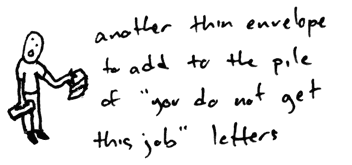 another thin envelope
to add to the pile
of "you do not get
this job" letters